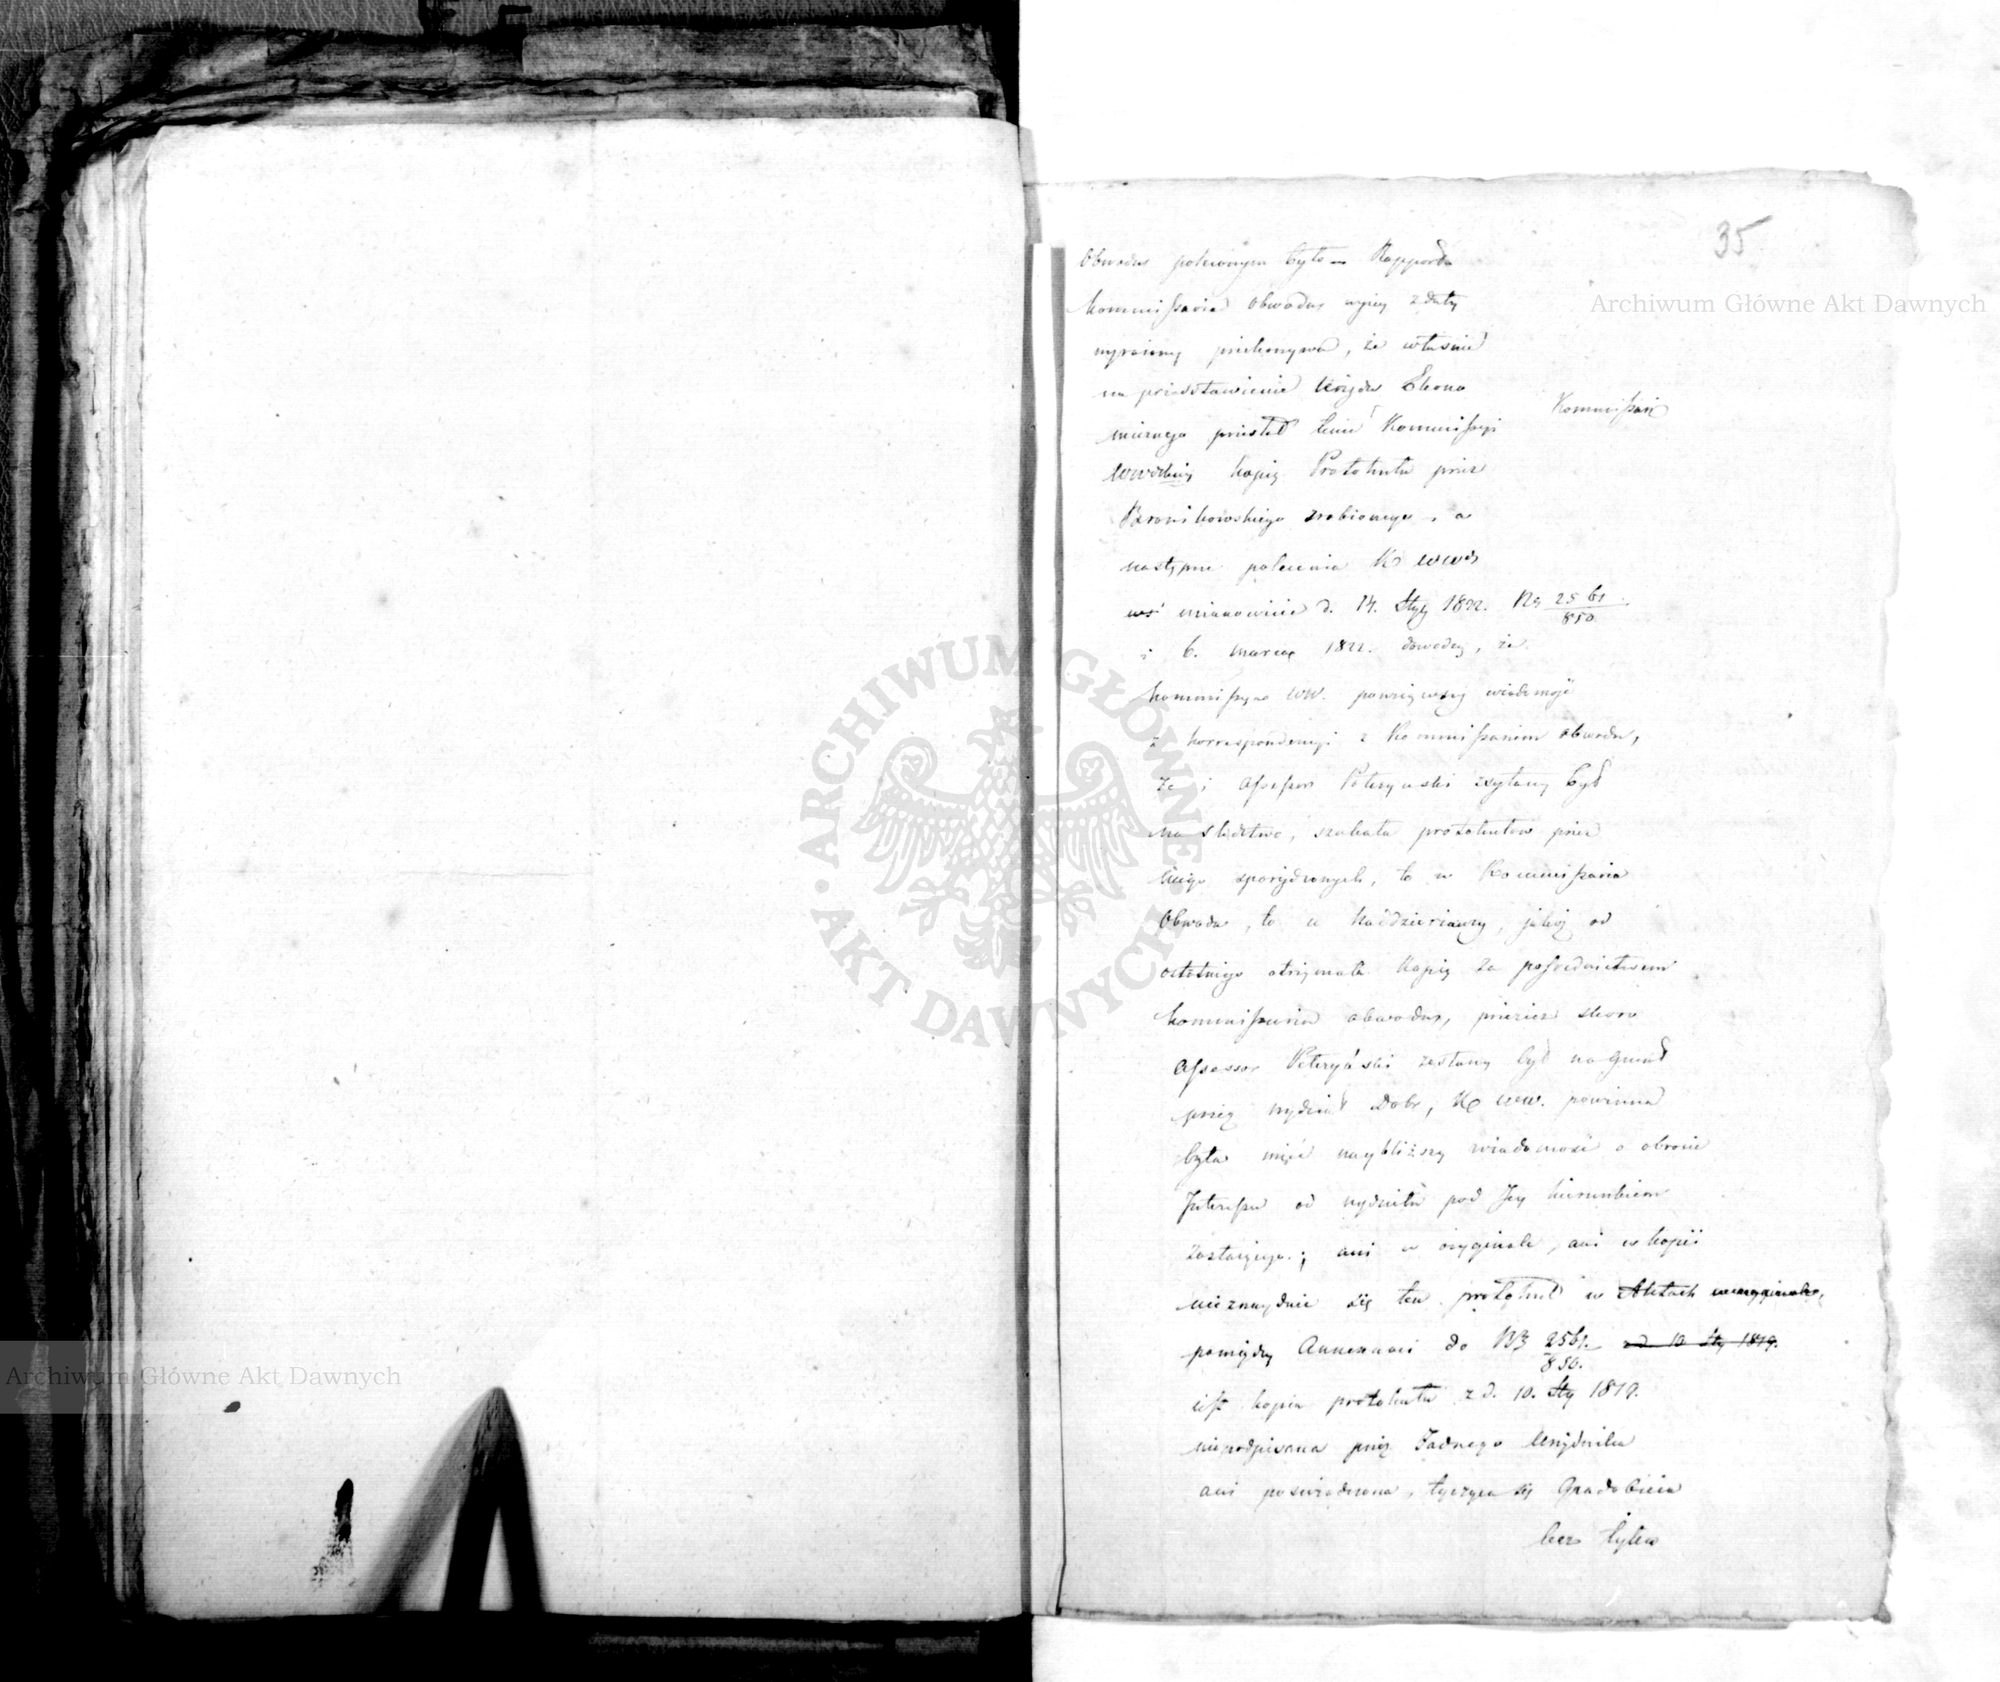 35
Obwodu poleconym było — Rapporta
Kommissarza Obwodu wyżey z daty
wyrażony przekonywa, że właśnie
na przedstawienie Urzędu Ekono
micznego przesłał tenże Kommissyi
Kommissarz
Wwdzkiey kopię Protokułu przez
Bronikowskiego zrobionego, a
następne polecenia K WWdz
mianowicie d. 14. Sty 1822. No 2561/850
i 6. marca 1822. dowodzą, że
Kommissya WW. powziąwszy wiadomość
z korrespondencyi z Kommissarzem obwodu,
że i Assessor zsyłany był
na śledztwo, szukała protokułów przez
niego sporządzonych, to w Kommissarza
Obwodu, to u Naddzierżawcy, jakoż od
ostatniego otrzymała kopię za pośrednictwem
Kommissarza obwodu, przecież skoro
Assessor zesłany był na grunt
przez wydział Dobr, K WW. powinna
była mieć naybliższą wiadomość o obrocie
Interessu od wydziału pod Jey kierunkiem
zostaiącego; ani w oryginale, ani w kopii
nieznayduie się ten protokuł w Aktach
pomiędzy Annexami do No 2561/850. z d. 10 Sty 1819.
iest kopia protokułu z d. 10. Sty 1819.
niepodpisana przez żadnego Urzędnika
ani poświadczona, tycząca się Gradobicia
lecz tylko
Archiwum Główne Akt Dawnych
Archiwum Główne Akt Dawnych
ARCHIWUM GŁÓWNE AKT DAWNYCH